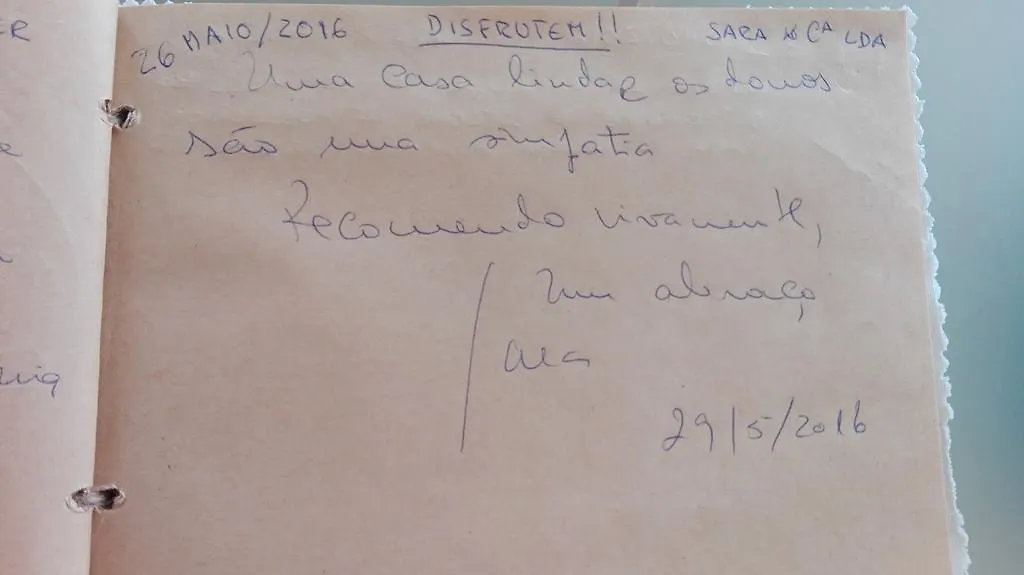 ER
26 MAIO/2016 DISFRUTEM!! SARA & Cª LDA
Uma casa linda e os donos
são uma simpatia
Recomendo vivamente,
Um abraço
29/5/2016